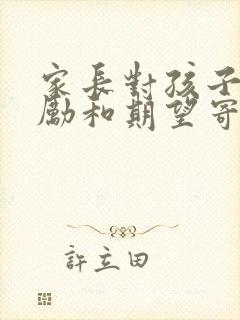 家長對孩子
勵和期望寄
許立田